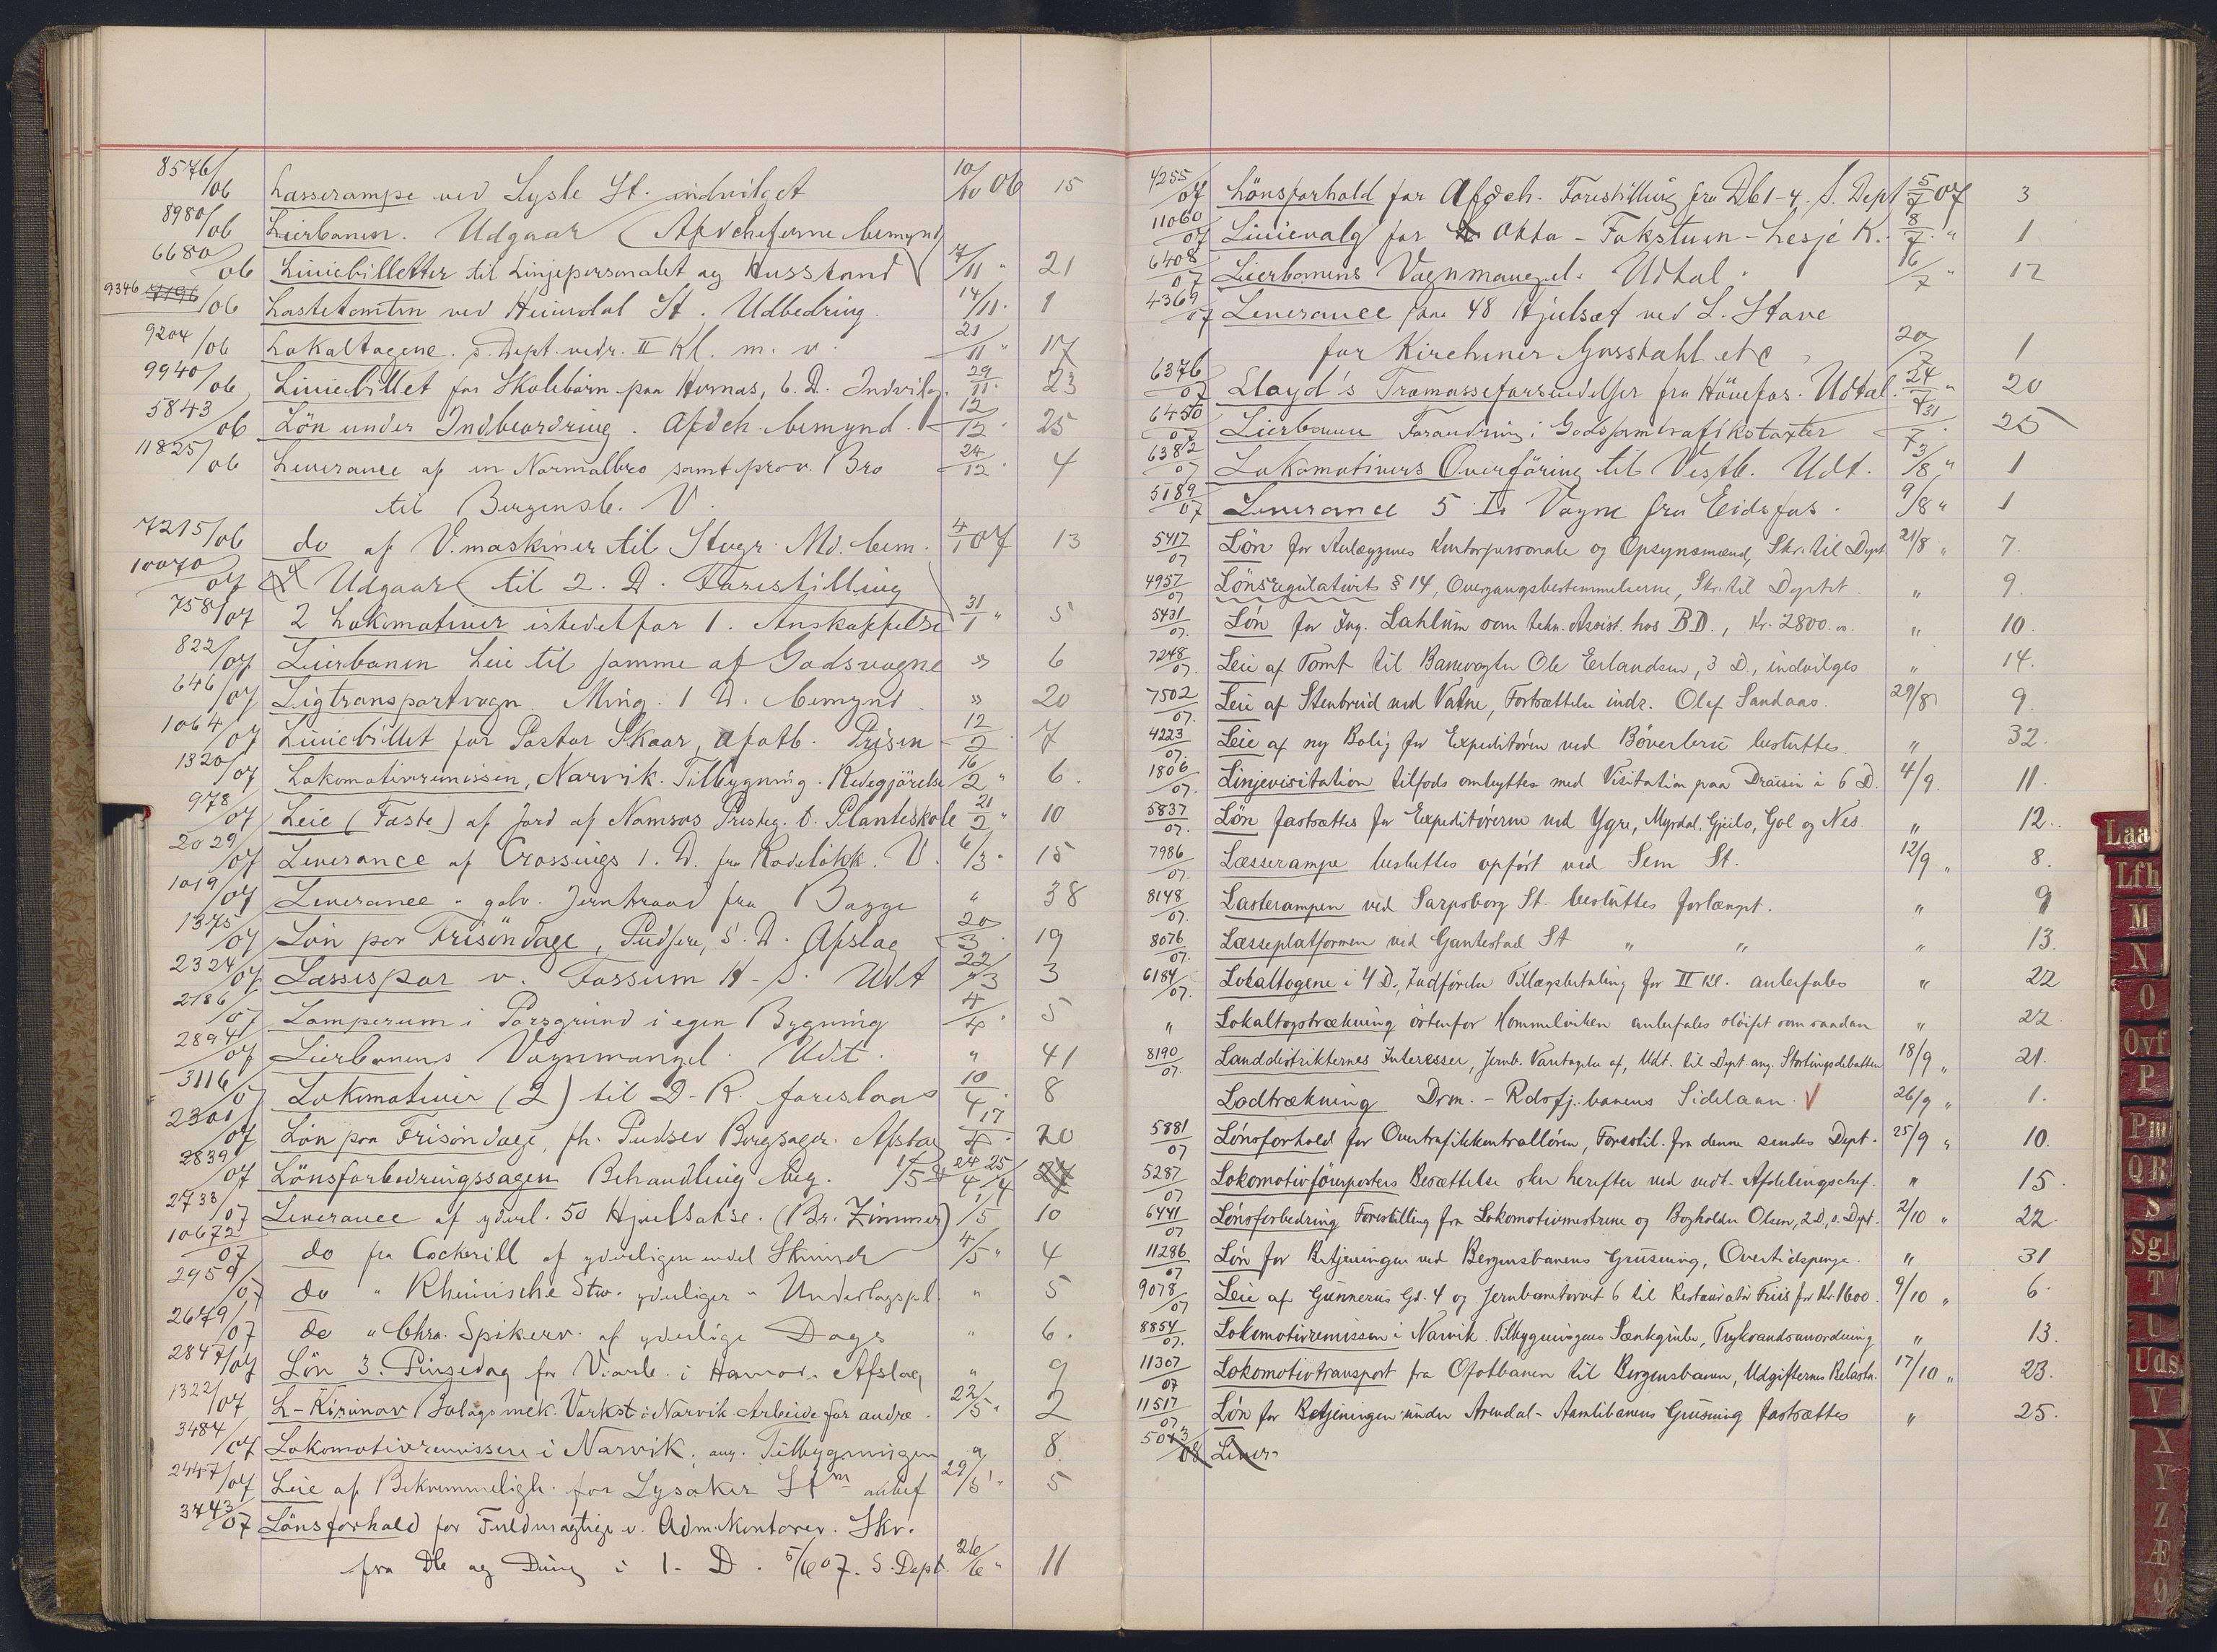 8576/06 Lasserampe ved Lysle St. indvilget 10/10 06 15
8980/06 Lierbanen. Udgaar (Afdcheferne bemynd
6680/06 Liniebilletter til Linjepersonalet og Husstand 7/11 " 21
9346 7196/06 Lastetomten ved Heimdal St. Udbedring. 14/11 " 1
9204/06 Lokaltogene. s. Dept. vedr. II Kl. m. v. 21/11 " 17
9940/06 Liniebillet for Skolebörn paa Hornæs, 6. D. Indvilg. 29/11 " 23
5843/06 Lön under Indbeordring. Afdch. bemynd. 12/12 " 25
11825/06 Leverance af en Normalbro samt prov. Bro 24/12 " 4
til Bergensb. V.
7215/06 do af V.maskiner til Stvgr. Md. bem. 4/1 07 13
10070/07 Udgaar (til 2. D. Forestilling
758/07 2 Lokomotiver istedetfor 1. Anskaffelse 31/1 " 5
822/07 Lierbanen Leie til samme af Godsvogne " 6
646/07 Ligtransportvogn. Ming. 1 D. bemynd. " 20
1064/07 Liniebillet for Pastor Skaar, Ofotb. Prisen 12/2 " 7
1320/07 Lokomotivremissen, Narvik. Tilbygning. Redegjörelse 16/2 " 6.
978/07 Leie (Faste) af Jord af Namsos Presteg. t. Planteskole 21/2 " 10
2029/07 Leverance af Crossings 1. D. fra Rodelökk. V. 6/3 " 15
1019/07 Leverance " galv. Jerntraad fra Bagge " 38
1375/07 Lön paa Frisöndage, Pudsere, 5. D. Afslag 20/3 19
2324/07 Læssespor v. Fossum H-S. Udt 22/3 " 3
2186/07 Lamperum i Porsgrund i egen Bygning 4/4 " 5
2894/07 Lierbanens Vognmangel. Udt. " 41
3116/07 Lokomotiver (2) til D-R. foreslaas 10/4 " 8
2301/07 Lön paa Frisöndage, fh. Pudser Borgsager. Afslag 17/4 " 20
2839/07 Lönsforbedringssagen Behandling Ang. 1/5 24/4 25/4 27
2738/07 Leverance af yderl. 50 Hjulsatse. (Br. Zimmer) 1/5 10
10672/07 do fra Cockerill af yderligere endel Skinner 4/5 " 4
2959/07 do " Rheinische Stw. yderliger " Underlagspl. " 5
2679/07 do " Chra. Spikerv. af yderlige Dogs " 6.
2847/07 Lön 3. Pinsedag for V.arb. i Hamar. Afslag " 9
1322/07 L-Kirunav. Bolags mek. Verkst i Narvik Arbeide for andre. 22/5 " 2
3484/07 Lokomotivremissen i Narvik. ang. Tilbygningen " 8
2447/07 Leie af Bekvemmeligh. for Lysaker St.m anbef 29/5 " 5
3443/07 Lönsforhold for Fuldmægtige v. Adm.Kontorer. Skr.
fra Db og Ding i 1. D. 5/6 07. S. Dept. 26/6 " 11
4255/07 Lönsforhold for Afdch. Forestilling fra Db 1-4. S. Dept 5/7 07 3
11060/07 Linievalg for Otta - Fokstuen - Lesje K. 8/7 " 1
6408/07 Lierbanens Vognmangel. Udtal. 16/7 " 12
4369/07 Leverance paa 48 Hjulsæt ved L. Stave
for Kirchner Gusstahl etc, 20/7 1
6376/07 Lloyd's Træmasseforsendelser fra Hönefos. Udtal. 24/7 " 20
6450/07 Lierbanen Forandring i Godssamtrafikstakster 31/7 " 25
6382/07 Lokomotivers Overföring til Vestb. Udt. 3/8 " 1
5189/07 Leverance 5 Is Vogne fra Eidsfos. 9/8 " 1
5417/07 Løn for Anlæggenes Kontorpersonale og Opsynsmænd, Skr. til Dept 21/8 " 7
4957/07 Lønsregulativets § 14, Overgangsbestemmelserne, Skr. til Deptet " 9.
5431/07. Løn for Ing. Lahlum som tekn. Assist. hos BD., Kr. 2800.00. " 10.
7248/07. Leie af Tomt til Banevogter Ole Erlandsen, 3 D., indvilges " 14.
7502/07. Leie af Stenbrud ved Vatne, Fortsættelse indr. Olaf Sandaas. 29/8 9.
4223/07. Leie af ny Bolig for Expeditøren ved Bøverbru besluttes. " 32.
1806/07. Linjevisitation tilfods ombyttes med Visitation paa Dræsin i 6 D. 4/9. 11.
5837/07. Løn fastsættes for Expeditørerne ved Ygre, Myrdal, Gjeilo, Gol og Nes. " 12.
7986/07. Læsserampe besluttes opført ved Sem St. 12/9 " 8.
8148/07. Lasterampen ved Sarpsborg St. besluttes forlænget. " 9
8076/07. Læsseplatformen ved Gantestad St " " " 13.
6184/07. Lokaltogene i 4 D., Indførelse Tillægsbetaling for II Kl. anbefales " 22
" Lokaltogstrækning östenfor Hommelviken anbefales sløifet som saadan " 22.
8190/07. Landdistrikternes Interesser, Jernb. Varetagelse af, Udt. til Dept. ang. Stortingsdebatten 18/9 " 21.
Lodtrækning Drm. - Rdsfj.-banens Sidelaan. V 26/9 " 1.
5881/07 Lønsforhold for Overtrafikkontrolløren, Forestil. fra denne sendes Dept. 25/9 " 10.
5287/07 Lokomotivførerposters Besættelse sker herefter ved vedk. Afdelingschef. " 15.
6441/07 Lønsforbedring Forestilling fra Lokomotivmestrene og Bogholder Olsen, 2 D, s. Dept. 2/10 " 22.
11286/07 Løn for Betjeningen ved Bergensbanens Grusning, Overtidspenge. " 31
9078/07 Leie af Gunnerus Gd. 4 og Jernbanetorvet 6 til Restauratør Friis for Kr. 1600. 9/10 " 6.
8854/07. Lokomotivremissen i Narvik. Tilbygningens Sænkgruber, Trykvandsanordning " 13.
11307/07 Lokomotivtransport fra Ofotbanen til Bergensbanen, Udgifternes Belastn. 17/10 " 23.
11517/07 Løn for Betjeningen under Arendal-Aamlibanens Grusning fastsættes " 25.
5013/08 Lever
Laa
Lfh
M
N
O
Ovf
P
Pm
QR
S
Sgl
T
U
Uds
V
X
Y
Z
Æ
Ø